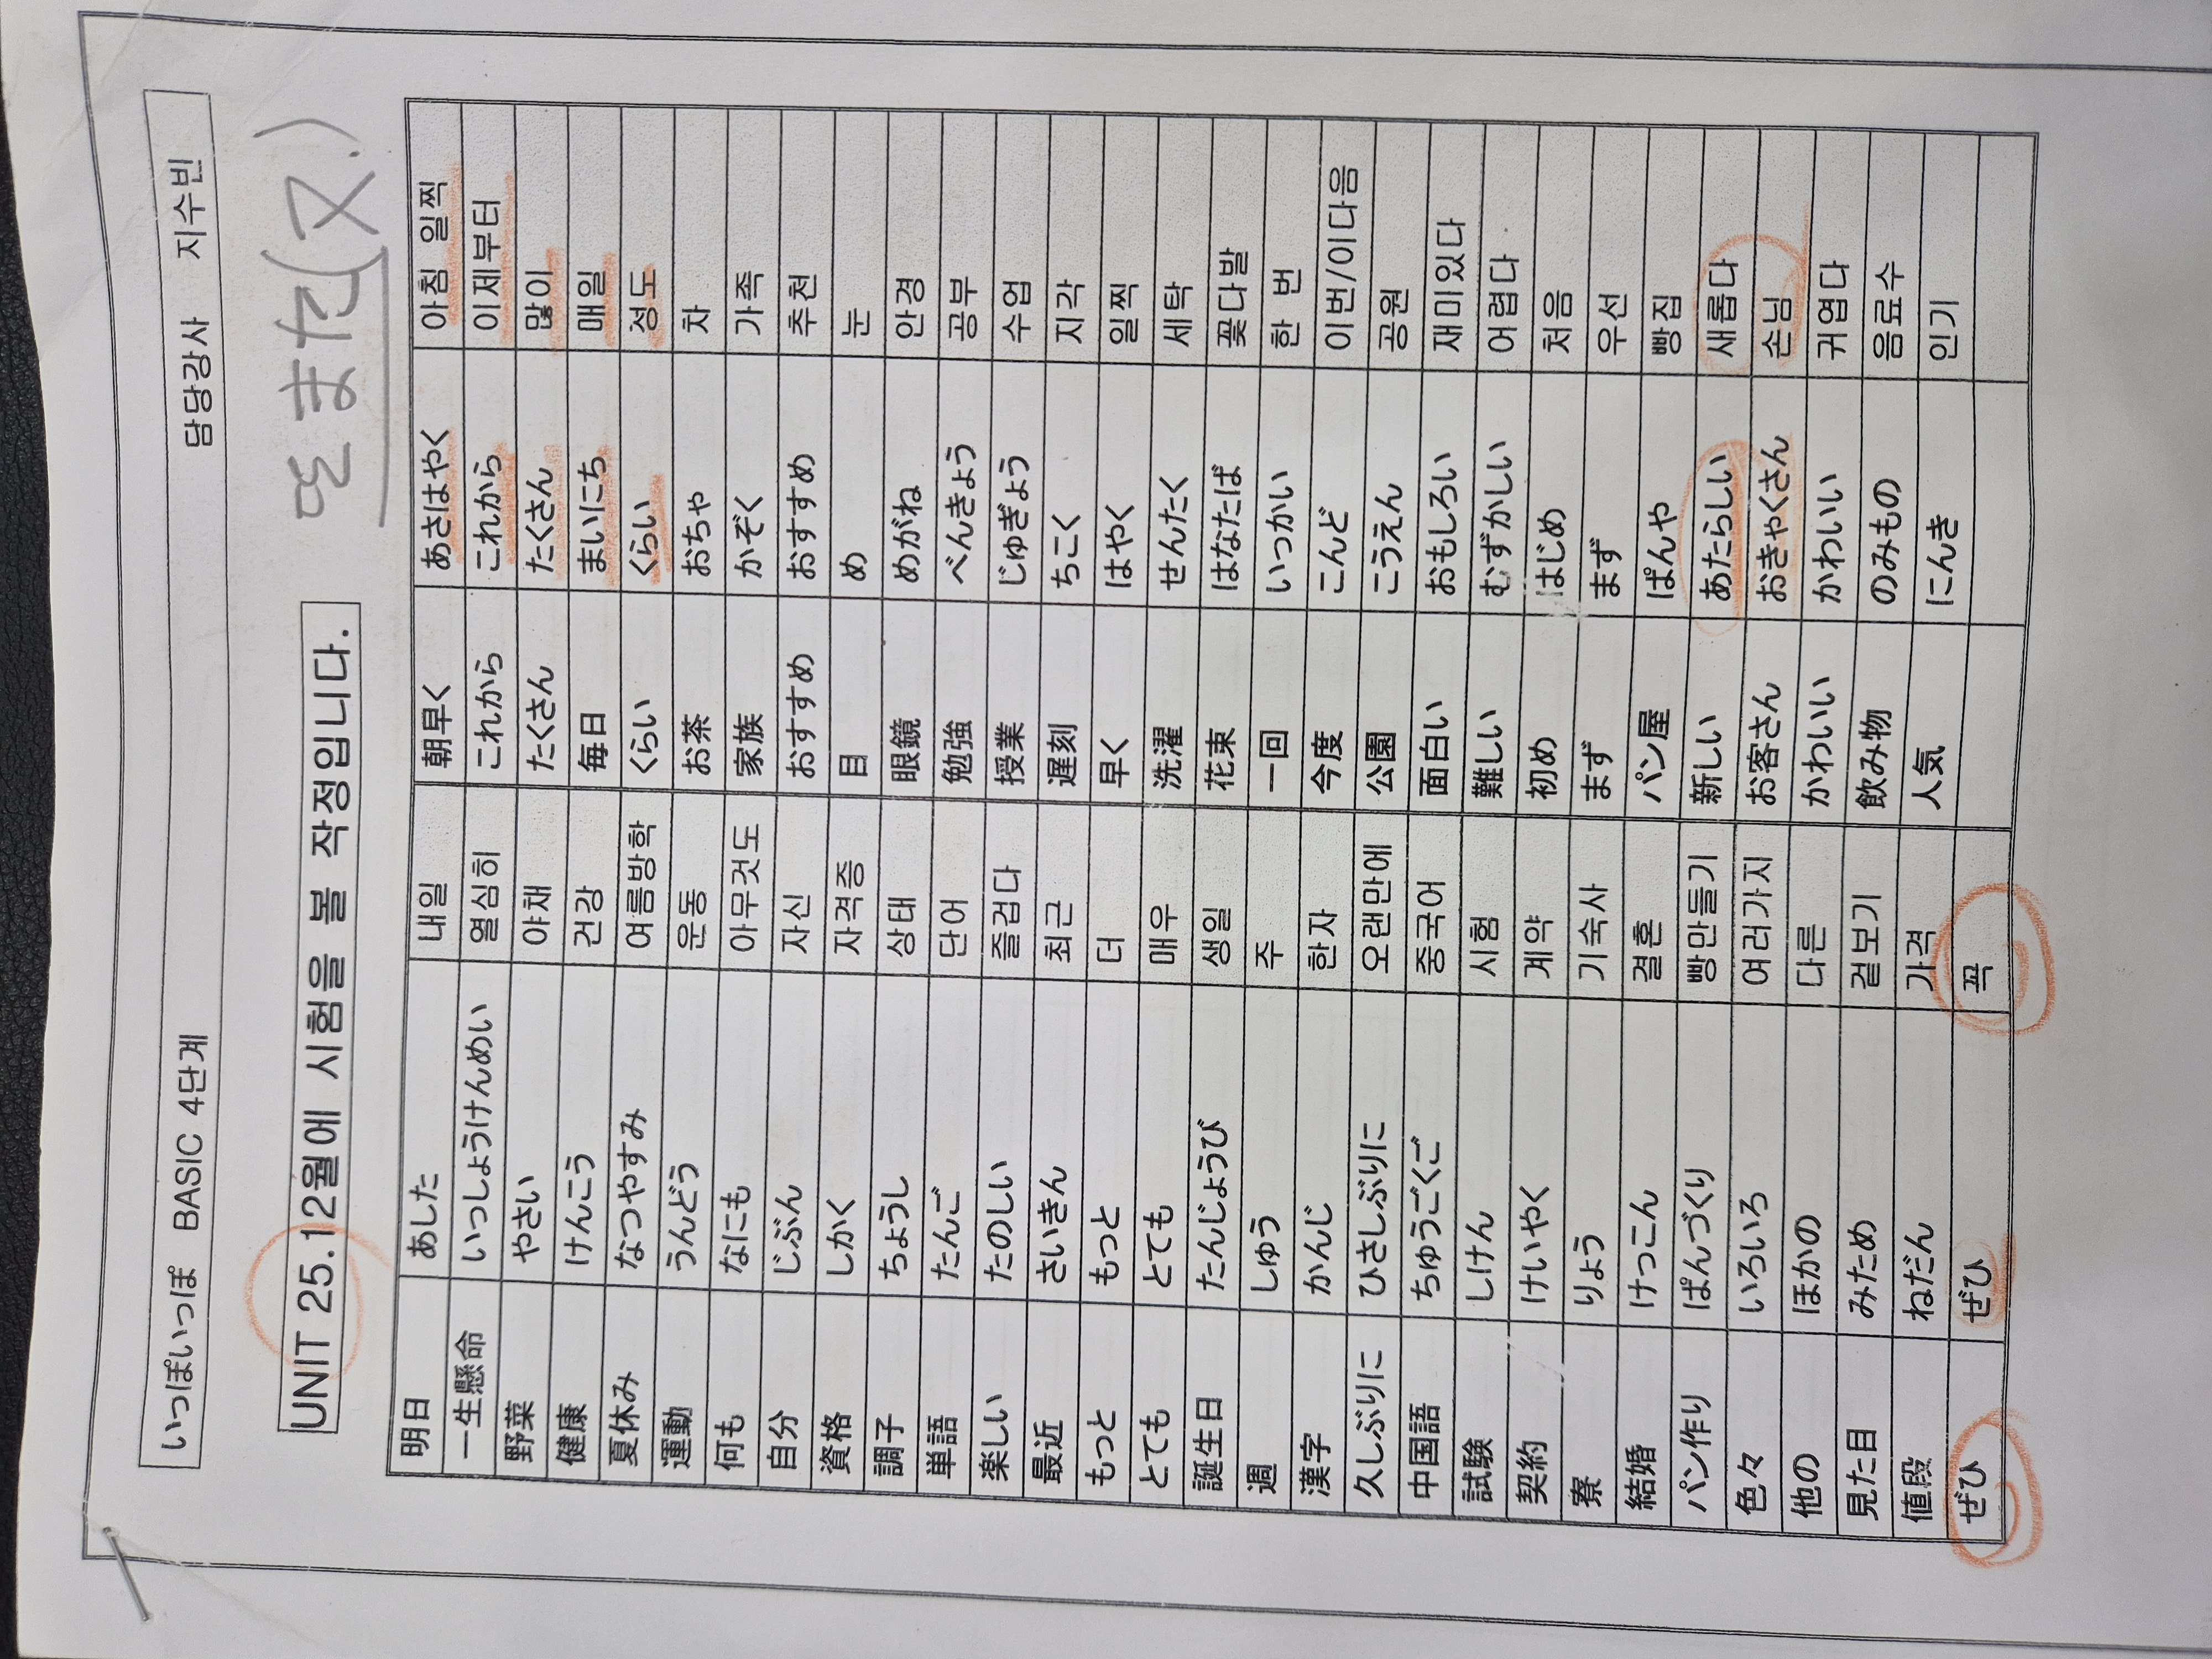 いっぽいっぽ BASIC 4단계 담당강사 지수빈
UNIT 25.12월에 시험을 볼 작정입니다.
또 また(又)
明日 あした 내일 朝早く あさはやく 아침 일찍
一生懸命 いっしょうけんめい 열심히 これから これから 이제부터
野菜 やさい 야채 たくさん たくさん 많이
健康 けんこう 건강 毎日 まいにち 매일
夏休み なつやすみ 여름방학 くらい くらい 정도
運動 うんどう 운동 お茶 おちゃ 차
何も なにも 아무것도 家族 かぞく 가족
自分 じぶん 자신 おすすめ おすすめ 추천
資格 しかく 자격증 目 め 눈
調子 ちょうし 상태 眼鏡 めがね 안경
単語 たんご 단어 勉強 べんきょう 공부
楽しい たのしい 즐겁다 授業 じゅぎょう 수업
最近 さいきん 최근 遅刻 ちこく 지각
もっと もっと 더 早く はやく 일찍
とても とても 매우 洗濯 せんたく 세탁
誕生日 たんじょうび 생일 花束 はなたば 꽃다발
週 しゅう 주 一回 いっかい 한 번
漢字 かんじ 한자 今度 こんど 이번/이다음
久しぶりに ひさしぶりに 오랜만에 公園 こうえん 공원
中国語 ちゅうごくご 중국어 面白い おもしろい 재미있다
試験 しけん 시험 難しい むずかしい 어렵다
契約 けいやく 계약 初め はじめ 처음
寮 りょう 기숙사 まず まず 우선
結婚 けっこん 결혼 パン屋 ぱんや 빵집
パン作り ぱんづくり 빵만들기 新しい あたらしい 새롭다
色々 いろいろ 여러가지 お客さん おきゃくさん 손님
他の ほかの 다른 かわいい かわいい 귀엽다
見た目 みため 겉보기 飲み物 のみもの 음료수
値段 ねだん 가격 人気 にんき 인기
ぜひ ぜひ 꼭